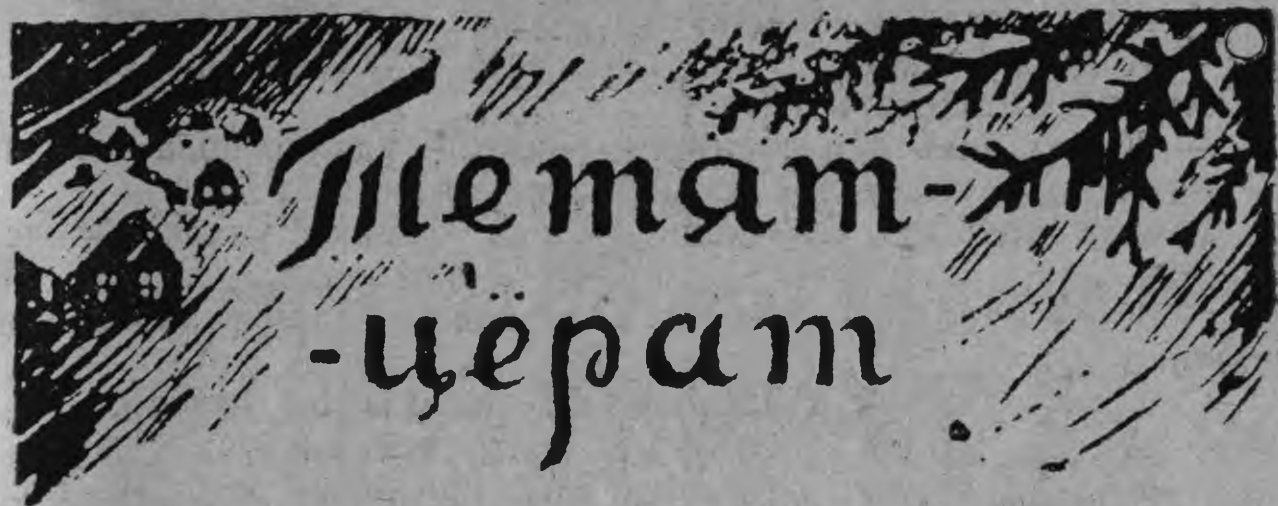 Тетят-
-цёрат